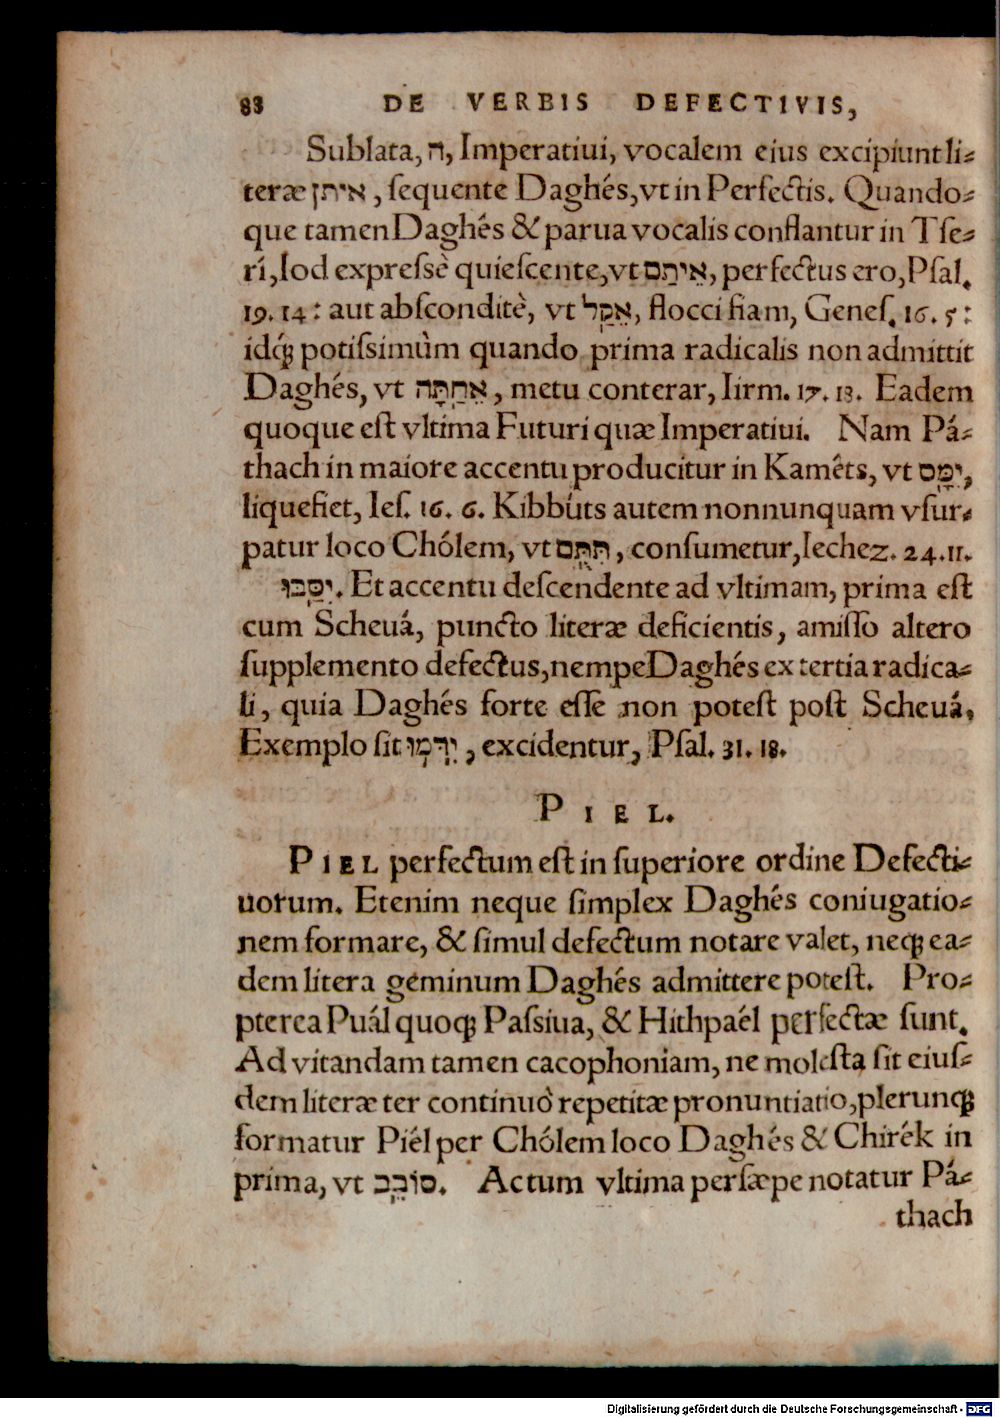 88 DE VERBIS DEFECTIVIS,
Sublata, ה, Imperatiui, vocalem eius excipiunt li⸗
teræ איתן, ſequente Daghés, vt in Perfectis. Quando⸗
que tamen Daghés & parua vocalis conflantur in Tſe⸗
rí, Iod expreſsè quieſcente, vt אֵיתַם, perfectus ero, Pſal.
19. 14: aut abſconditè, vt אֵקַל, flocci fiam, Geneſ. 16. 5:
idq́; potiſsimùm quando prima radicalis non admittit
Daghés, vt אֵחַתָּה, metu conterar, Iirm. 17. 18. Eadem
quoque eſt vltima Futuri quæ Imperatiui. Nam Pá⸗
thach in maiore accentu producitur in Kaméts, vt יִמָּס,
liquefiet, Ieſ. 16. 6. Kibbúts autem nonnunquam vſur⸗
patur loco Chólem, vt תִּתֻּם, conſumetur, Iechez. 24. 11.
יִסַּבּוּ. Et accentu deſcendente ad vltimam, prima eſt
cum Scheuá, puncto literæ deficientis, amiſſo altero
ſupplemento defectus, nempe Daghés ex tertia radica⸗
li, quia Daghés forte eſſe non poteſt poſt Scheuá,
Exemplo ſit יִדְּמוּ, excidentur, Pſal. 31. 18.
PIEL.
PIEL perfectum eſt in ſuperiore ordine Defecti⸗
uorum. Etenim neque ſimplex Daghés coniugatio⸗
nem formare, & ſimul defectum notare valet, neq; ea⸗
dem litera geminum Daghés admittere poteſt. Pro⸗
pterea Puál quoq; Paſsiua, & Hithpaél perfectæ ſunt.
Ad vitandam tamen cacophoniam, ne moleſta ſit eiuſ⸗
dem literæ ter continuò repetitæ pronuntiatio, plerunq;
formatur Piél per Chólem loco Daghés & Chirék in
prima, vt סוֹבֵב. Actum vltima perſæpe notatur Pá⸗
thach
Digitalisierung gefördert durch die Deutsche Forschungsgemeinschaft - DFG